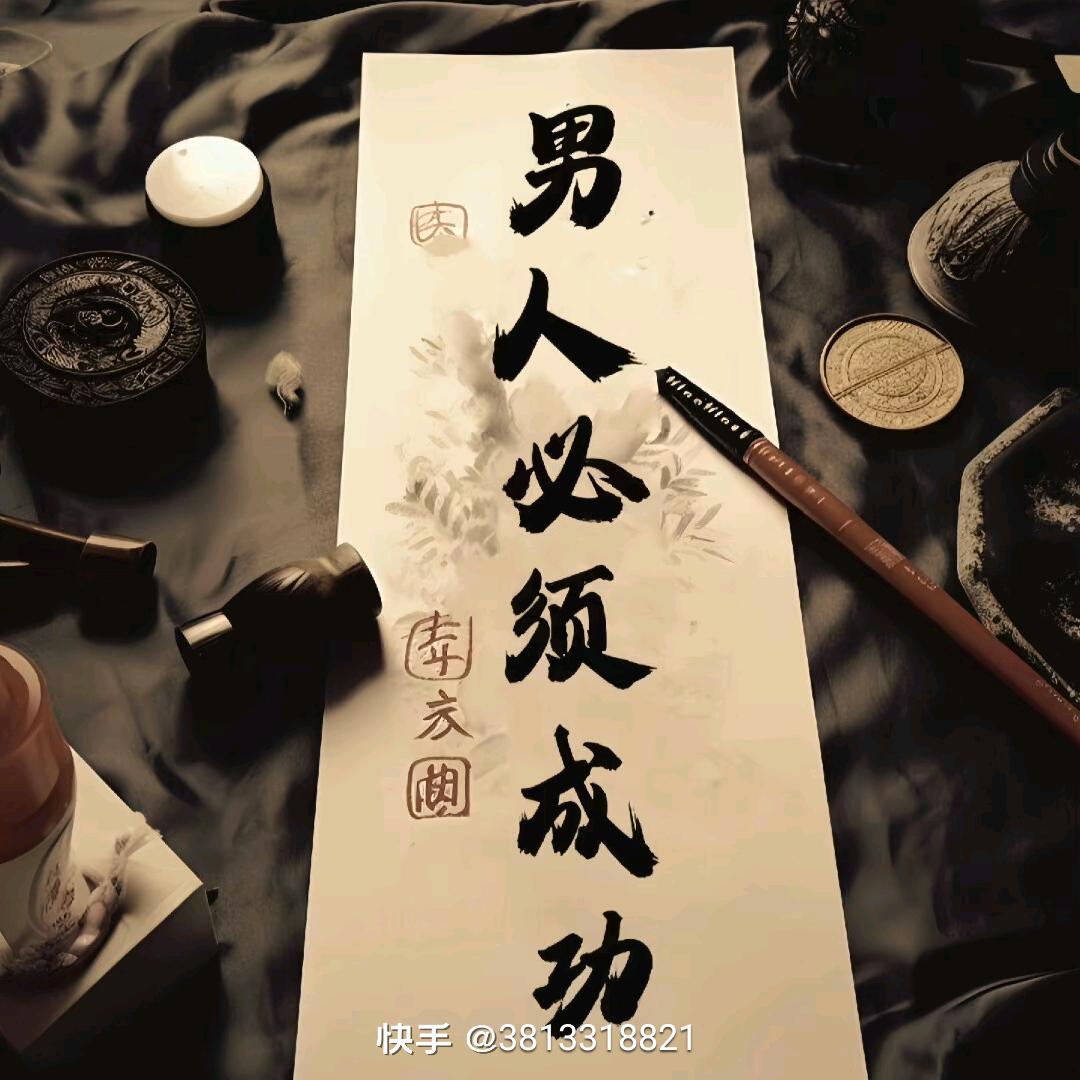 男人必须成功
快手 @3813318821